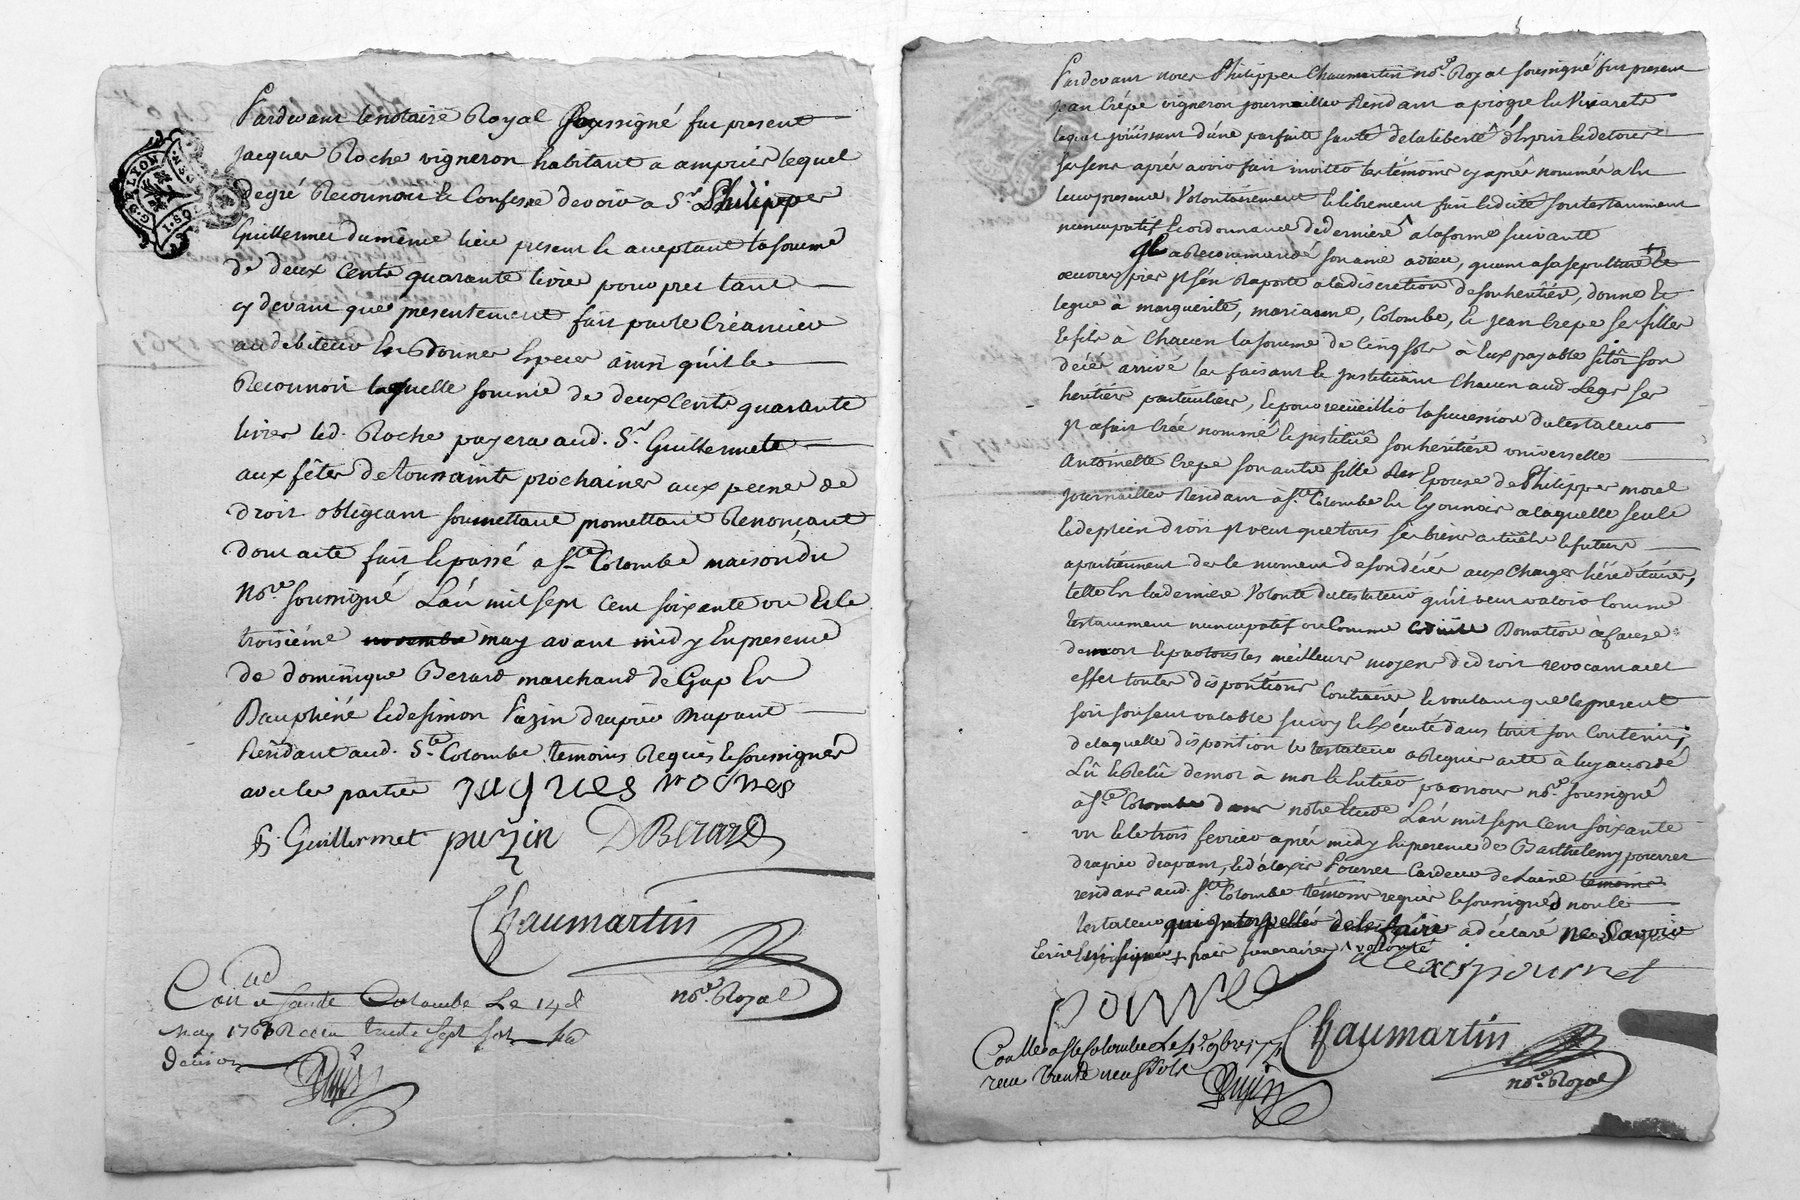 G. DE LYON
Pardevant le notaire Royal soussigné fut present
Jacques Roche vigneron habitant a ampuis lequel
de gré Reconnoit et Confesse devoir a Sr. Philippe
Guillermet du même lieu present et aceptant la somme
de deux Cents quarante livres pour prest tant
cy devant que presentement fait par le Créancier
au debiteur En Bonnes Especes ainsi qu'il le
Reconnoit laquelle somme de deux Cents quarante
livres led. Roche payera aud. Sr. Guillermet
aux fêtes de toussaints prochaines aux peines de
droit obligeant soumettant promettant Renonçant
dont acte fait et passé a Ste Colombe maison du
No.re soussigné L'an mil sept cent soixante un Et le
troisiéme novembre may avant midy En presence
de dominique Berard marchand de Gap En
Dauphiné et de simon Pazin drapier Drapant
Résidant aud. Ste Colombe temoins Requis et soussignés
avec les parties Jaques Roches
P. Guillermet puzin DBerard
Chaumartin
no.re Royal
Con.lé a Sainte Colombe Le 14e
May 1761 Receu trente sept sols
Pardevant nous Philippe Chaumartin no.re Royal soussigné fut present
jean Crépe vigneron journaillier Résidant a
lequel joüissant d'une parfaite santé de la liberté d'Esprit et de tous
ses sens aprés avoir fait inviter les témoins cy aprés nommés a
leur presence, Volontairement et librement fait et dicté son testamment
nuncupatif et ordonnance de derniere ^ a la forme suivante
Il a Recommandé son ame a dieu, quant a sa sepulture +
oeuvres pies Il s'en Raporte a la discretion de son heritiére, donne Et
legue à marguerite, marianne, Colombe, et jean Crepe ses filles
et fils à Chacun la somme de Cinq sols à Eux payable sitôt son
décés arrivé les faisant Et Instituant Chacun aud. Legs ses
héritiers particuliers, Et pour recüeillir la succession du testateur
Il a fait Créé nommé et Institué son heritiére universelle
Antoinette Crepe son autre fille Epouse de Philippe morel
journaillier Résidant à Ste Colombe En Lyonnois a laquelle seule
et de plein droit Il veut que tous ses biens actüels et futurs
apartiennent des le moment de son décés aux Charges héréditaires,
telle Est la derniere Volonté du testateur qu'il veut valoir Comme
testamment nuncupatif ou Comme Donation à Cause
de mort Et par tous les meilleurs moyens de droit revocant a cet
effet toutes dispositions Contraires Et voulant que le present
soit son seul valable suivy Et Exécuté dans tout son Contenu;
de laquelle disposition le testateur a Requis acte à luy accordé
Lû et Relû de mot à mot Et Entier par nous no.re soussigné
à Ste Colombe dans notre Etude L'an mil sept Cent soixante
un Et le trois fevrier aprés midy En presence de Barthelemy pournet
drapier drapant, Et d'alexis Pournet Cardeur de Laine temoins
residans aud. Ste Colombe témoins requis et soussignés non le
testateur qui Interpellé de le faire a déclaré ne Savoir
Ecrire + frais funeraires ^ volonté
alexis pournet
pournet
Chaumartin
no.re Royal
Con.llé a Ste Colombe Le
receu trente neuf sols